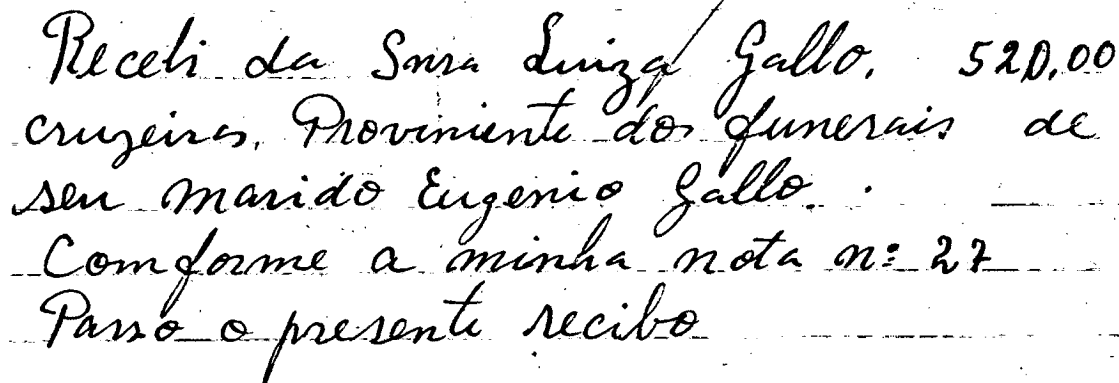 Recebi da Snra Luiza Gallo. 520,00
cruzeiros. Proviniente dos funerais de
seu marido Eugenio Gallo.
Comforme a minha nota nº 27
Passo o presente recibo